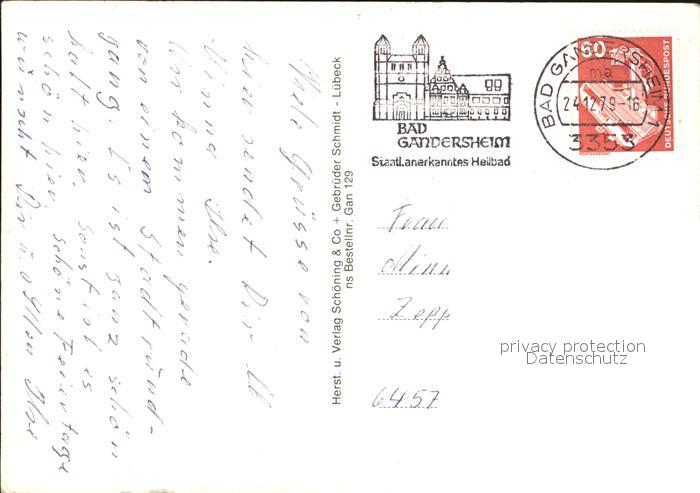 Viele Grüsse von
hier sendet Dir lb
Minna Ilse.
Wir kommen gerade
von einem Stadtrund-
gang. Es ist ganz schön
kalt hier. Sonst ist es
schön hier. Schöne Feiertage
wünscht Dir u. allen Ilse
Herst. u. Verlag Schöning & Co + Gebrüder Schmidt - Lübeck
ns Bestellnr. Gan 129
BAD
GANDERSHEIM
Staatl. anerkanntes Heilbad
BAD GANDERSHEIM 1
ma
24.12.79-16
3353
60
DEUTSCHE BUNDESPOST
Frau
Minn
Zepp
6457
privacy protection
Datenschutz